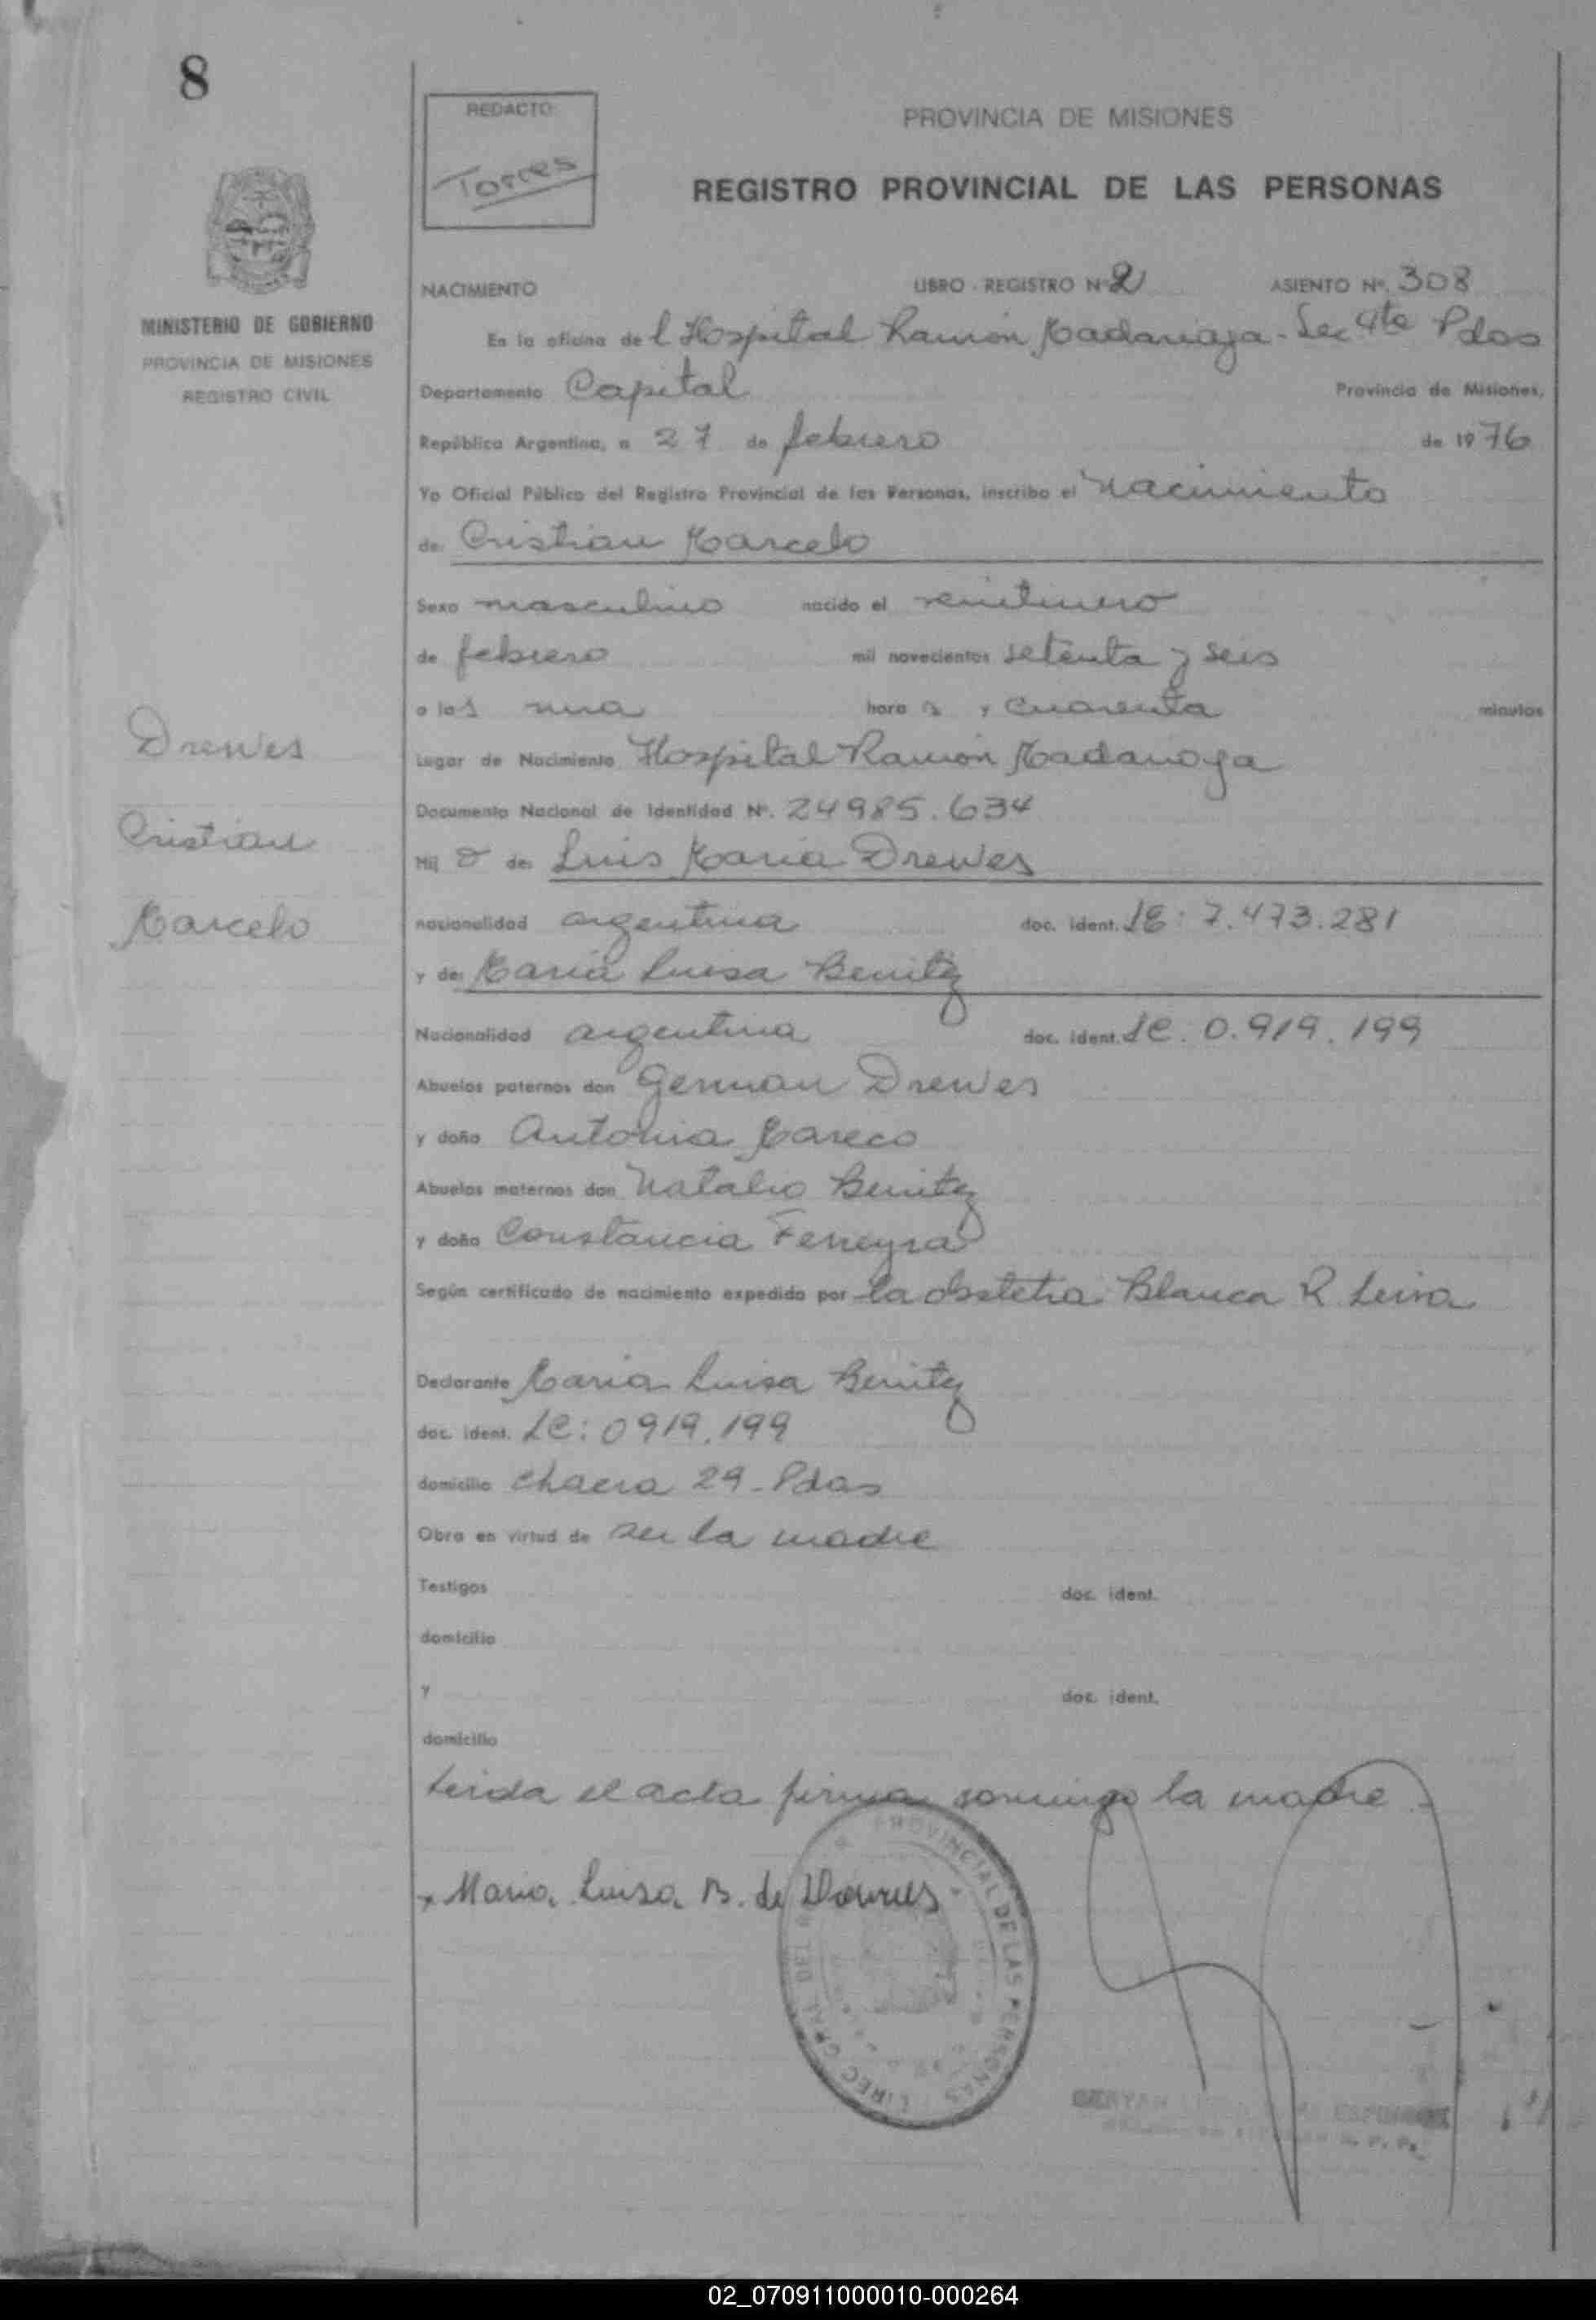 8
REDACTO
Torres
PROVINCIA DE MISIONES
REGISTRO PROVINCIAL DE LAS PERSONAS
MINISTERIO DE GOBIERNO
PROVINCIA DE MISIONES
REGISTRO CIVIL
NACIMIENTO LIBRO - REGISTRO Nº 2 ASIENTO Nº. 308
En la oficina del Hospital Ramón Madariaga - Sec 4ta Pdas
Departamento Capital Provincia de Misiones,
República Argentina, a 27 de febrero de 1976
Yo Oficial Público del Registro Provincial de las Personas, inscribo el Nacimiento
de: Cristian Marcelo
Sexo masculino nacido el
de febrero mil novecientos setenta y seis
a las una hora s y cuarenta minutos
Lugar de Nacimiento Hospital Ramón Madariaga
Documento Nacional de Identidad Nº. 24985.634
Hijo de: Luis Maria Drewes
nacionalidad argentina doc. ident. LE: 7.473.281
y de: Maria Luisa Benitez
Nacionalidad argentina doc. ident. LC. 0.919.199
Abuelos paternos don German Drewes
y doña Antonia Mareco
Abuelos maternos don Natalio Benitez
y doña Constancia Ferreyra
Según certificado de nacimiento expedido por la obstetra Blanca R. Leiva
Declarante Maria Luisa Benitez
doc. ident. LC: 0919.199
domicilio chacra 29 - Pdas
Obra en virtud de ser la madre
Testigos doc. ident.
domicilio
y doc. ident.
domicilio
Leida el acta firma conmigo la madre.-
x Maria Luisa B. de Drewes
Drewes
Cristian
Marcelo
PROVINCIAL DE LAS PERSONAS
02_070911000010-000264